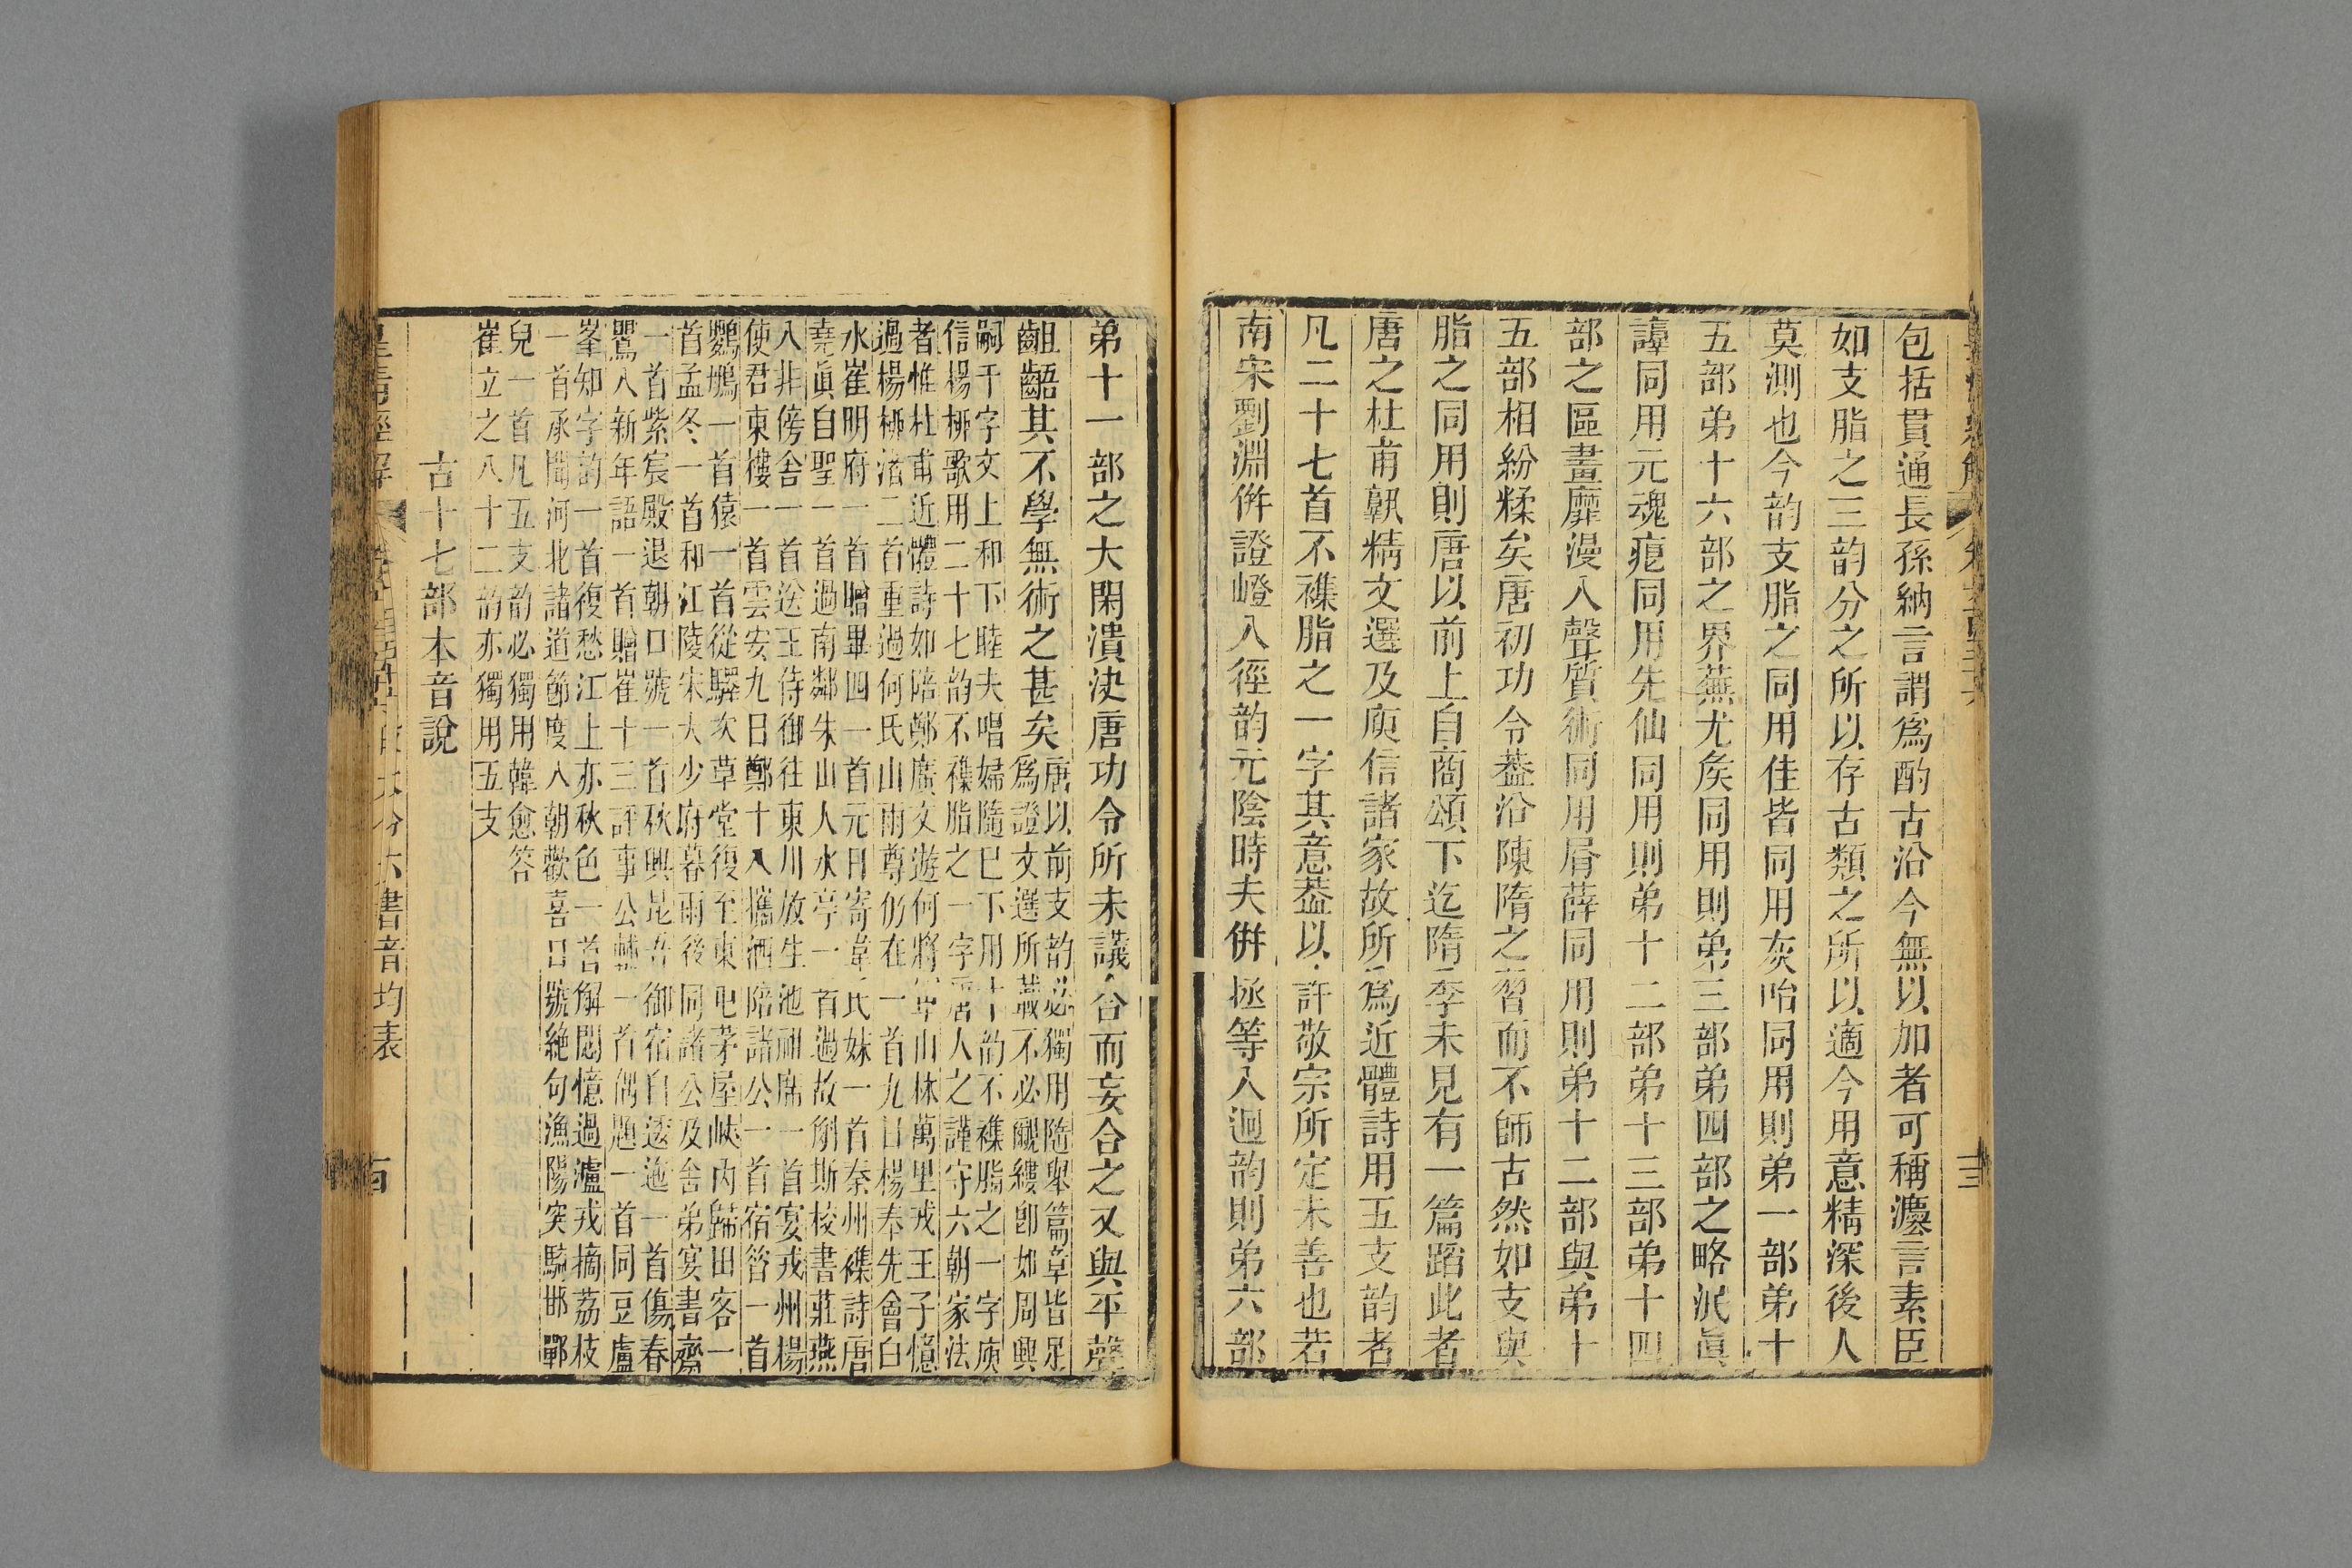 包括貫通長孫納言謂爲酌古沿今無以加者可稱灋言素臣
如支脂之三韵分之所以存古類之所以適今用意精深後人
莫測也今韵支脂之同用佳皆同用灰咍同用則弟一部弟十
五部弟十六部之界蕪尤矦同用則弟三部弟四部之略泯眞
諄同用元魂痕同用先仙同用則弟十二部弟十三部弟十四
部之區畫靡漫入聲質術同用屑薛同用則弟十二部與弟十
五部相紛糅矣唐初功令葢沿陳隋之習而不師古然如支與
脂之同用則唐以前上自商頌下迄隋季未見有一篇蹈此者
唐之杜甫孰精文選及庾信諸家故所爲近體詩用五支韵者
凡二十七首不襍脂之一字其意葢以許敬宗所定未善也若
南宋劉淵倂證嶝入徑韵元陰時夫倂拯等入迥韵則弟六部
弟十一部之大閑潰決唐功令所未議合而妄合之又與平聲
齟齬其不學無術之甚矣
唐以前支韵必獨用隨舉篇章皆足
爲證文選所載不必覼縷卽如周興
嗣千字文上和下睦夫唱婦隨已下用十韵不襍脂之一字庾
信楊柳歌用二十七韵不襍脂之一字唐人之謹守六朝家法
者惟杜甫近體詩如陪鄭廣文遊何將軍山林萬里戎王子憶
過楊柳渚二首重過何氏山雨尊仍在一首九日楊奉先會白
水崔明府一首贈畢四一首元日寄韋氏妹一首秦州襍詩唐
堯眞自聖一首過南鄰朱山人水亭一首過故斛斯校書莊燕
入非傍舍一首送王侍御往東川放生池祖席一首宴戎州楊
使君東樓一首雲安九日鄭十八攜酒陪諸公一首宿昝一首
鸚鵡一首猿一首從驛次草堂復至東屯茅屋峽內歸田客一
首孟冬一首和江陵宋大少府暮雨後同諸公及舍弟宴書齋
一首紫宸殿退朝口號一首秋興昆吾御宿自逶迤一首傷春
鸎入新年語一首贈崔十三評事公輔一首偶題一首同豆盧
峯知字韵一首復愁江上亦秋色一首解悶憶過瀘戎摘荔枝
一首承聞河北諸道節度入朝歡喜口號絶句漁陽突騎邯鄲
兒一首凡五支韵必獨用韓愈答
崔立之八十二韵亦獨用五支
古十七部本音說